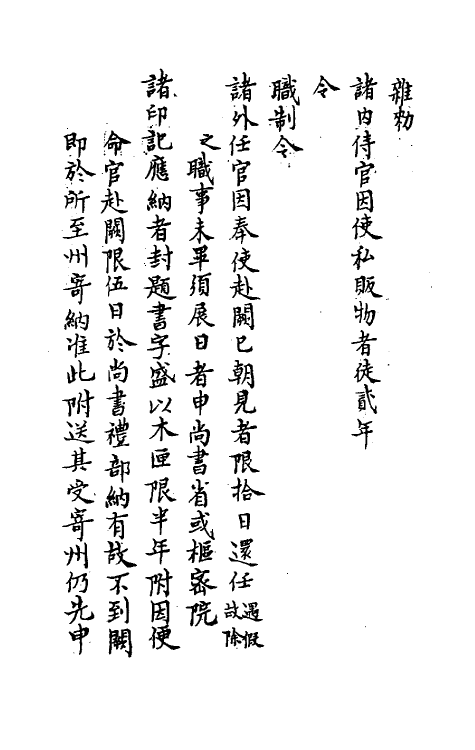 雜勑
諸內侍官因使私販物者徒貳年
令
職制令
諸外任官因奉使赴闕已朝見者限拾日還任遇假故除
之職事未畢須展日者申尚書省或樞密院
諸印記應納者封題書字盛以木匣限半年附因便
命官赴闕限伍日於尚書禮部納有故不到闕
即於所至州寄納准此附送其受寄州仍先申